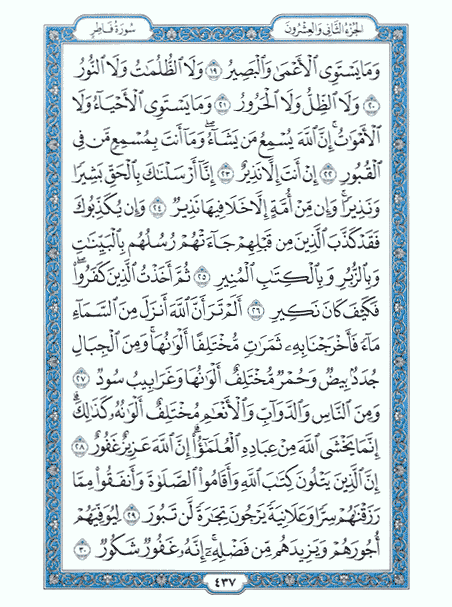 الجزء الثاني والعشرون سورة فاطر
وَمَا يَسْتَوِي ٱلْأَعْمَىٰ وَٱلْبَصِيرُ ١٩ وَلَا ٱلظُّلُمَٰتُ وَلَا ٱلنُّورُ
٢٠ وَلَا ٱلظِّلُّ وَلَا ٱلْحَرُورُ ٢١ وَمَا يَسْتَوِي ٱلْأَحْيَآءُ وَلَا
ٱلْأَمْوَٰتُ ۚ إِنَّ ٱللَّهَ يُسْمِعُ مَن يَشَآءُ ۖ وَمَآ أَنتَ بِمُسْمِعٍ مَّن فِي
ٱلْقُبُورِ ٢٢ إِنْ أَنتَ إِلَّا نَذِيرٌ ٢٣ إِنَّآ أَرْسَلْنَٰكَ بِٱلْحَقِّ بَشِيرًا
وَنَذِيرًا ۚ وَإِن مِّنْ أُمَّةٍ إِلَّا خَلَا فِيهَا نَذِيرٌ ٢٤ وَإِن يُكَذِّبُوكَ
فَقَدْ كَذَّبَ ٱلَّذِينَ مِن قَبْلِهِمْ جَآءَتْهُمْ رُسُلُهُم بِٱلْبَيِّنَٰتِ
وَبِٱلزُّبُرِ وَبِٱلْكِتَٰبِ ٱلْمُنِيرِ ٢٥ ثُمَّ أَخَذْتُ ٱلَّذِينَ كَفَرُوا۟ ۖ
فَكَيْفَ كَانَ نَكِيرِ ٢٦ أَلَمْ تَرَ أَنَّ ٱللَّهَ أَنزَلَ مِنَ ٱلسَّمَآءِ
مَآءً فَأَخْرَجْنَا بِهِۦ ثَمَرَٰتٍ مُّخْتَلِفًا أَلْوَٰنُهَا ۚ وَمِنَ ٱلْجِبَالِ
جُدَدٌۢ بِيضٌ وَحُمْرٌ مُّخْتَلِفٌ أَلْوَٰنُهَا وَغَرَابِيبُ سُودٌ ٢٧
وَمِنَ ٱلنَّاسِ وَٱلدَّوَآبِّ وَٱلْأَنْعَٰمِ مُخْتَلِفٌ أَلْوَٰنُهُۥ كَذَٰلِكَ ۗ
إِنَّمَا يَخْشَى ٱللَّهَ مِنْ عِبَادِهِ ٱلْعُلَمَٰٓؤُا۟ ۗ إِنَّ ٱللَّهَ عَزِيزٌ غَفُورٌ ٢٨
إِنَّ ٱلَّذِينَ يَتْلُونَ كِتَٰبَ ٱللَّهِ وَأَقَامُوا۟ ٱلصَّلَوٰةَ وَأَنفَقُوا۟ مِمَّا
رَزَقْنَٰهُمْ سِرًّا وَعَلَانِيَةً يَرْجُونَ تِجَٰرَةً لَّن تَبُورَ ٢٩ لِيُوَفِّيَهُمْ
أُجُورَهُمْ وَيَزِيدَهُم مِّن فَضْلِهِۦٓ ۚ إِنَّهُۥ غَفُورٌ شَكُورٌ ٣٠
٤٣٧